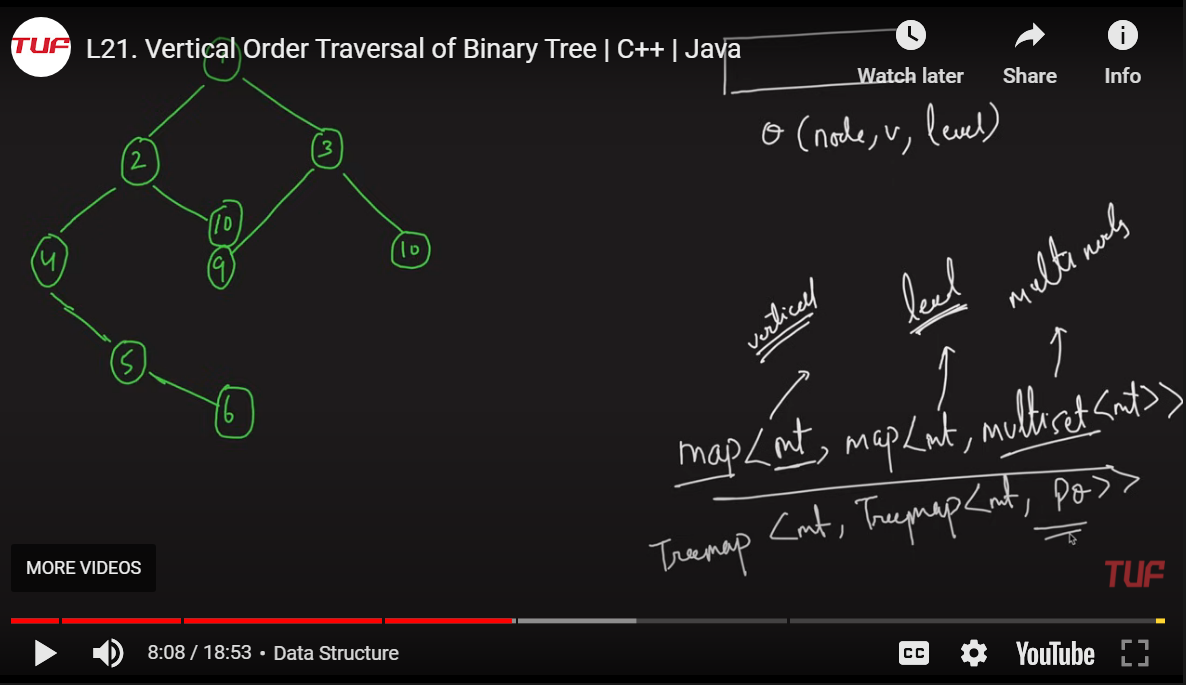 TUF L21. Vertical Order Traversal of Binary Tree | C++ | Java
Watch later Share Info
1
θ (node, v, level)
2
3
10
9
10
4
5
6
vertical
level
multi nodes
map<int, map<int, multiset<int>>
Treemap <int, Treemap<int, PQ>>
MORE VIDEOS
TUF
8:08 / 18:53 • Data Structure
CC YouTube